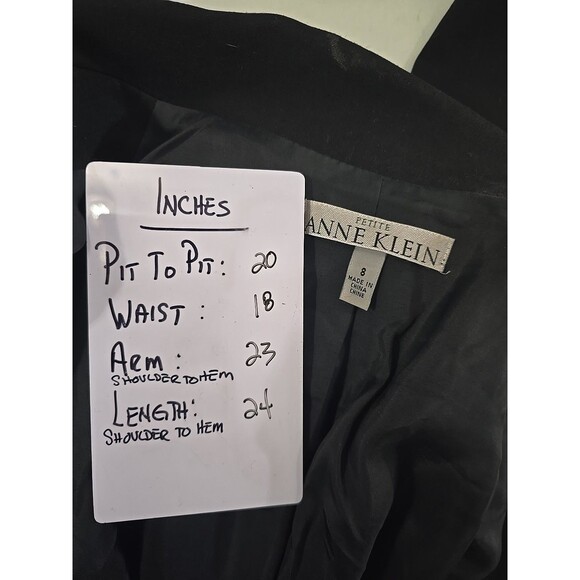 INCHES
PIT TO PIT: 20
WAIST: 18
ARM: 23
SHOULDER TO HEM
LENGTH: 24
SHOULDER TO HEM
PETITE
ANNE KLEIN
8
MADE IN
CHINA
CHINE